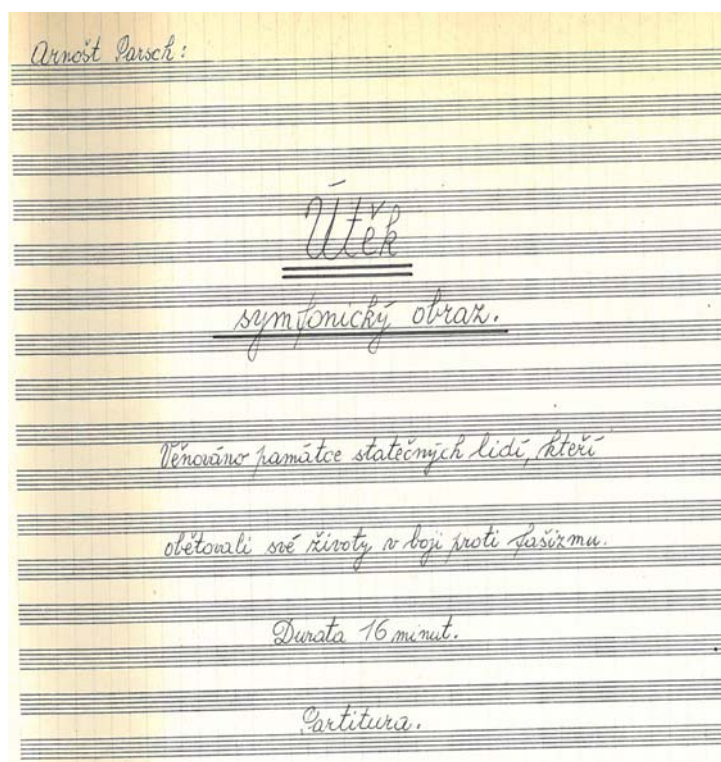 Arnošt Parsch:
Útěk
symfonický obraz.
Věnováno památce statečných lidí, kteří
obětovali své životy v boji proti fašizmu.
Durata 16 minut.
Partitura.